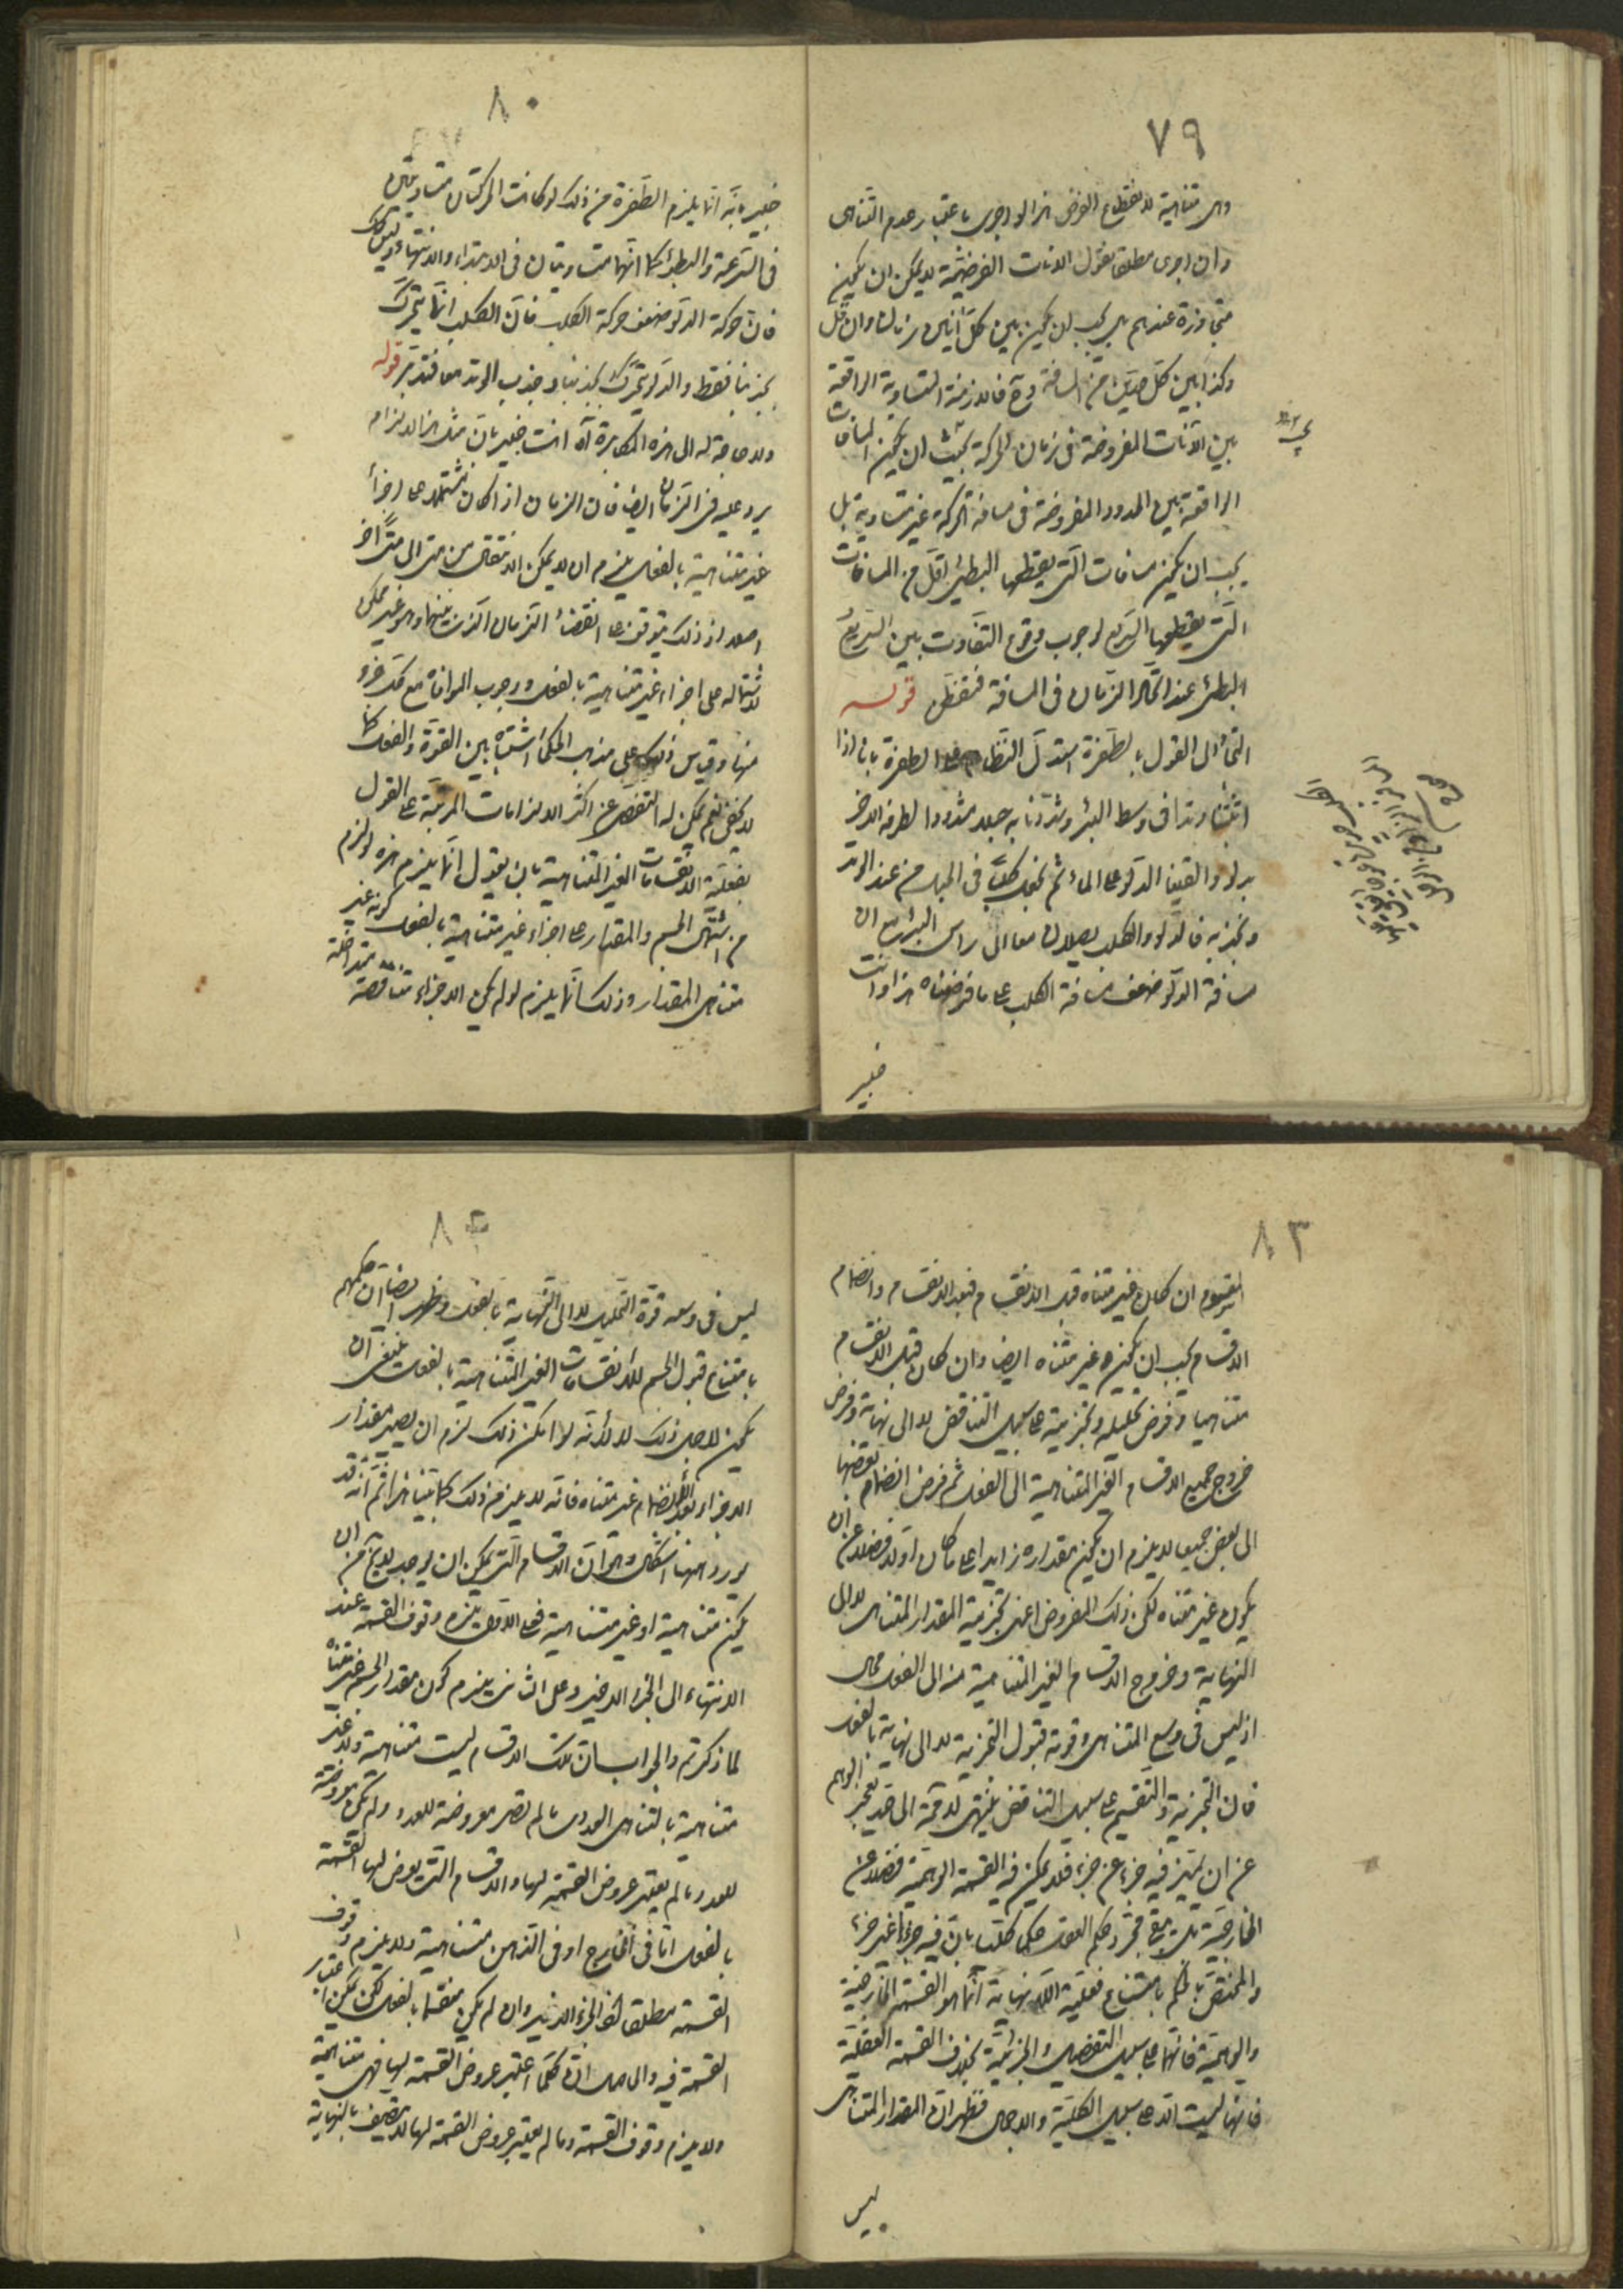 ٧٩
وهى متناهية لانقطاع الفرض هذا لو اجرى باعتبار عدم التناهى
وان اجرى مطلقا نقول الانات الفرضية لا يمكن ان يكون
متجاورة عندهم بل يجب ان يكون بين كل آنين زمان وان قل
وكذا بين كل حدين من المسافة وح فالازمنة المتساوية الواقعة
بين الآنات المفروضة فى زمان الحركة يجب ان يكون المسافات
الواقعة بين الحدود المفروضة فى مسافة الحركة غير متساوية بل
يجب ان يكون مسافات التى يقطعها البطئ اقل من المسافات
التى يقطعها السريع لوجوب وقوع التفاوت بين السريع
البطئ عند اتحاد الزمان فى المسافة فتفطن قوله
التجأ الى القول بالطفرة استدل النظام على الطفرة بانا اذا
اثبتنا وتدا فى وسط البئر وشددنا به حبلا مشدودا لطرفه الاخر
بدلو والقينا الدلو على الماء ثم نجعل كلابا فى الحبل من عند الوتد
ونجذبه فالدلو والكلاب يصلان معا الى راس البئر مع ان
مسافة الدلو ضعف مسافة الكلاب على ما فرضناه هذا وانت
خبير
٨٠
خبير بانه انما يلزم الطفرة من ذلك لو كانت الحركتان متساويتين
فى السرعة والبطؤ كما انهما متساويتان فى الابتداء والانتهاء وليس كذلك
فان حركة الدلو ضعف حركة الكلاب فان الكلاب انما يتحرك
بجذبنا فقط والدلو يتحرك بجذبنا وجذب الوتد معا فتدبر قوله
ولا حاجة له الى هذه المكابرة آه انت خبير بان مثل هذا الالزام
يرد عليه فى الزمان ايضا فان الزمان اذا كان مشتملا على اجزاء
غير متناهية بالفعل يلزم ان لا يمكن الانتقال من متى الى متى آخر
اصلا اذ ذلك يتوقف على انقضاء الزمان الذى بينهما وهو غير ممكن
لاشتماله على اجزاء غير متناهية بالفعل ووجوب الموافاة مع كل جزء
منها وقياس ذلك على مذهب الحكماء اشتباه بين القوة والفعل كما
لا يخفى نعم يمكن له التفصى عن اكثر الالزامات المرتبة على القول
بفعلية الانقسامات الغير المتناهية بان يقول انما يلزم هذه ولزم
من اشتمال الجسم والمقدار على اجزاء غير متناهية بالفعل كونه غير
متناهى المقدار وذلك انما يلزم لو لم يكن الاجزاء متناقصة متداخلة
٨٣
المقسوم ان كان غير متناه قبل الانقسام فبعد الانقسام وانضمام
الاقسام يجب ان يكون غير متناه ايضا وان كان قبل الانقسام
متناهيا وفرض تحليله وتجزيته على سبيل التناقص لا الى نهاية وفرض
خروج جميع الاقسام الغير المتناهية الى الفعل ثم فرض انضمام بعضها
الى بعض جميعا لا يلزم ان يكون مقداره زايدا على ما كان اولا فضلا عن ان
يكون غير متناه لكن ذلك المفروض اعنى تجزية المقدار المتناهى لا الى
النهاية وخروج الاقسام الغير المتناهية منه الى الفعل محال
اذ ليس فى وسع المتناهى وقوته قبول التجزية لا الى نهاية بالفعل
فان التجزية والتقسيم على سبيل التناقص ينتهى لا محة الى حد يعجز الوهم
عن ان يميز فيه جزءا عن جزء فلا يمكن فيه القسمة الوهمية فضلا عن
الخارجية بل يبقى مجرد حكم العقل حكما كليا بان فيه جزءا غير جزء
والمختص بالحكم بامتناع فعلية اللانهاية انما هو القسمة الخارجية
والوهمية فانها على سبيل التفصيل والجزئية بخلاف القسمة العقلية
فانها ليست الا على سبيل الكلية والاجمال فظهر ان المقدار المتناهى
ليس
٨٤
ليس فى وسعه قوة التحليل لا الى النهاية بالفعل وظهر ايضا ان حكمهم
بامتناع قبول الجسم للانقسامات الغير المتناهية بالفعل ينبغى ان
يكون لاجل ذلك لا لانه لو امكن ذلك لزم ان يصير مقدار
الاجزاء بعد الانضمام غير متناه فانه لا يلزم من ذلك كما بينا هذا ثم انه قد
يورد ههنا اشكال وهو ان الاقسام التى يمكن ان يوجد لا يخ من ان
يكون متناهية او غير متناهية فعلى الاول يلزم وقوف القسمة عند
الانتهاء الى الجزء الاخير وعلى الثانى يلزم كون مقدار الجسم غير متناه
لما ذكرتم والجواب ان تلك الاقسام ليست متناهية ولا غير
متناهية بالتناهى العددى ما لم تصر معروضة للعدد ولم تكن معروضة
للعدد ما لم يعتبر عروض القسمة لها والاقسام التى يعرض لها القسمة
بالفعل اما فى الخارج او فى الذهن متناهية ولا يلزم وقوف
القسمة مطلقا لان الجزء الاخير وان لم يكن منقسما بالفعل لكن يمكن اعتبار
القسمة فيه والحاصل ان كلما اعتبر عروض القسمة لها فهى متناهية
ولا يلزم وقوف القسمة وما لم يعتبر عروض القسمة لها لا يتصف بالنهاية